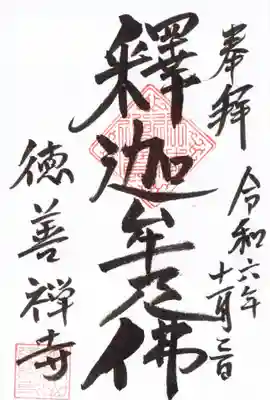 奉拜
令和六年十一月二日
釋迦牟尼佛
徳善禅寺